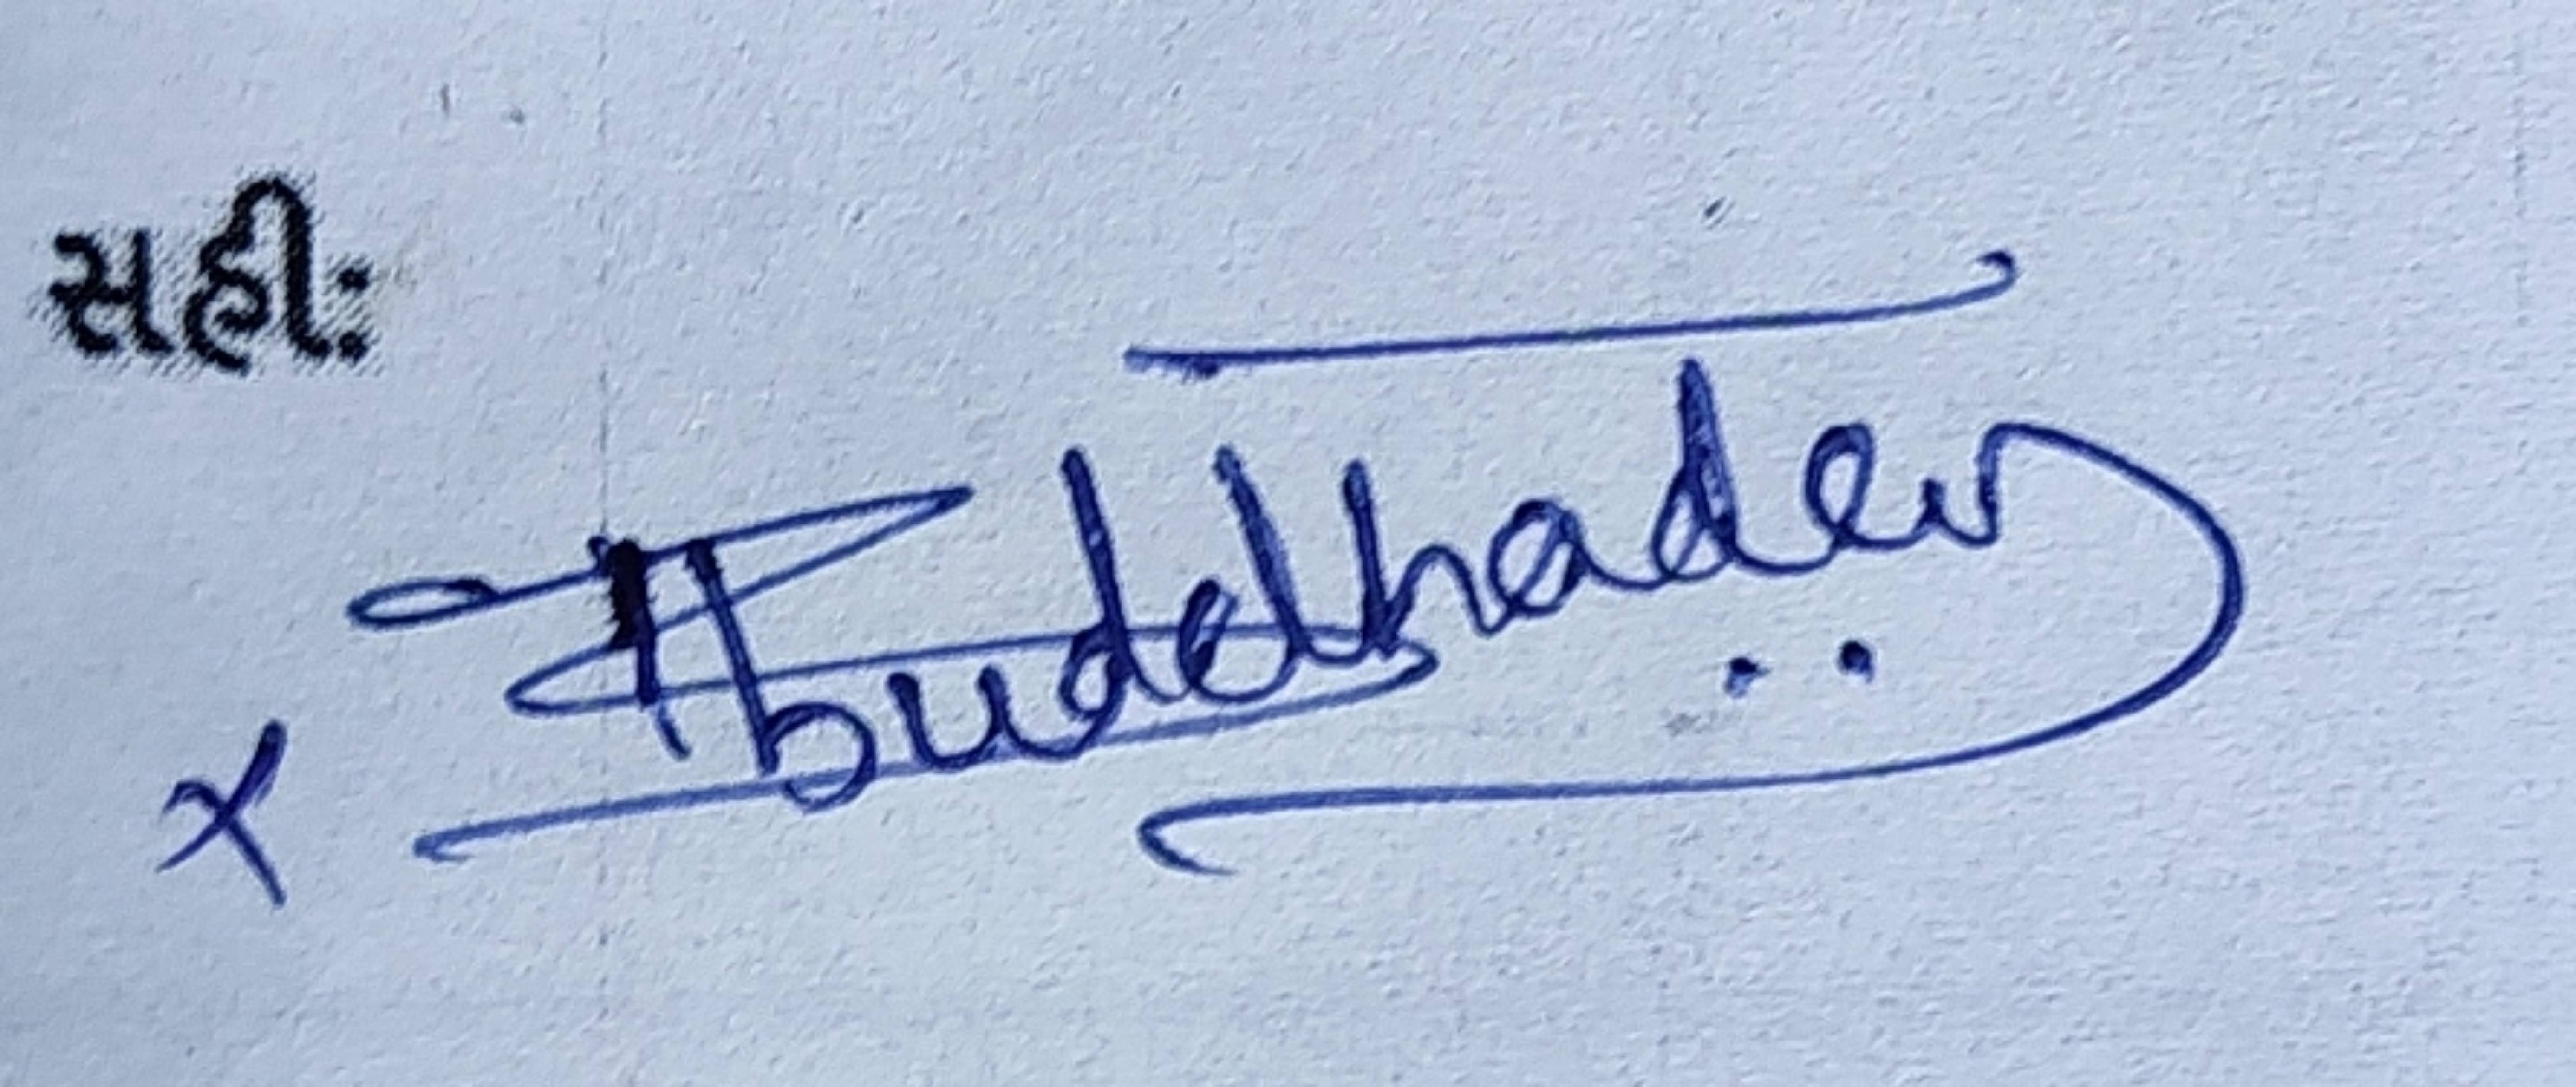 સહી:
x Buddhadev